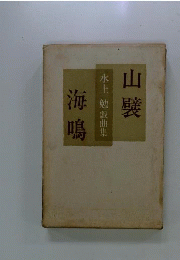 山襞
水上勉戯曲集
海鳴